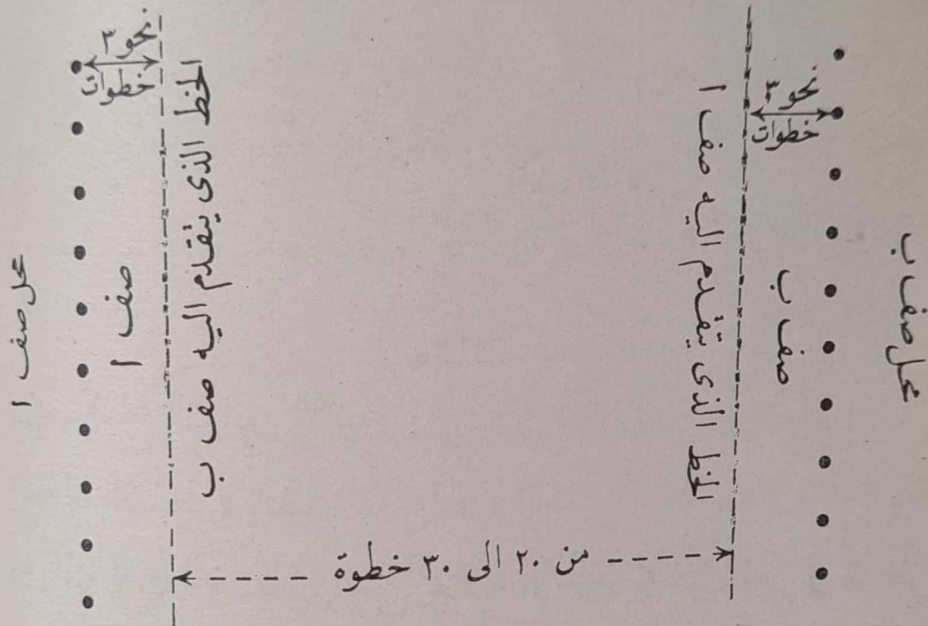 محل صف ا
نحو ٣
خطوات
صف ا
الخط الذى يتقدم اليه صف ب
من ٢٠ الى ٣٠ خطوة
الخط الذى يتقدم اليه صف ا
نحو ٣
خطوات
صف ب
محل صف ب